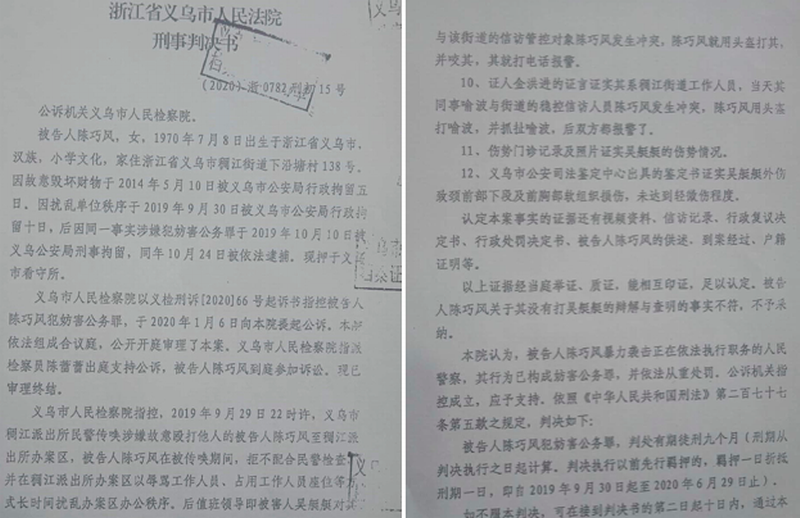 浙江省义乌市人民法院
刑事判决书
（2020）浙 0782 刑初 15 号
公诉机关义乌市人民检察院。
被告人陈巧风，女，1970 年 7 月 8 日出生于浙江省义乌市，
汉族，小学文化，家住浙江省义乌市稠江街道下沿塘村 138 号。
因故意毁坏财物于 2014 年 5 月 10 日被义乌市公安局行政拘留五
日。因扰乱单位秩序于 2019 年 9 月 30 日被义乌市公安局行政拘
留十日，后因同一事实涉嫌犯妨害公务罪于 2019 年 10 月 10 日被
义乌公安局刑事拘留，同年 10 月 24 日被依法逮捕。现押于义
市看守所。
义乌市人民检察院以义检刑诉[2020]66 号起诉书指控被告人
陈巧风犯妨害公务罪，于 2020 年 1 月 6 日向本院提起公诉。本
依法组成合议庭，公开开庭审理了本案。义乌市人民检察院指派
检察员陈蕾蕾出庭支持公诉，被告人陈巧风到庭参加诉讼。现已
审理终结。
义乌市人民检察院指控，2019 年 9 月 29 日 22 时许，义乌市
稠江派出所民警传唤涉嫌故意殴打他人的被告人陈巧风至稠江派
出所办案区，被告人陈巧风在被传唤期间，拒不配合民警检查
并在稠江派出所办案区以辱骂工作人员、占用工作人员座位等方
式长时间扰乱办案区办公秩序。后值班领导即被害人吴艇艇对其
与该街道的信访管控对象陈巧风发生冲突，陈巧风就用头盔打其，
并咬其，其就打电话报警。
10、证人金洪进的证言证实其系稠江街道工作人员，当天其
同事喻波与街道的稳控信访人员陈巧风发生冲突，陈巧风用头盔
打喻波，并抓扯喻波，后双方都报警了。
11、伤势门诊记录及照片证实吴艇艇的伤势情况。
12、义乌市公安司法鉴定中心出具的鉴定书证实吴艇艇外伤
致颈前部下段及前胸部软组织损伤，未达到轻微伤程度。
认定本案事实的证据还有视频资料、信访记录、行政复议决
定书、行政处罚决定书、被告人陈巧风的供述、到案经过、户籍
证明等。
以上证据经当庭举证、质证，能相互印证，足以认定。被告
人陈巧风关于其没有打吴艇艇的辩解与查明的事实不符，不予采
纳。
本院认为，被告人陈巧风暴力袭击正在依法执行职务的人民
警察，其行为已构成妨害公务罪，并依法从重处罚。公诉机关指
控成立，应予支持。依照《中华人民共和国刑法》第二百七十七
条第五款之规定，判决如下：
被告人陈巧风犯妨害公务罪，判处有期徒刑九个月（刑期从
判决执行之日起计算。判决执行以前先行羁押的，羁押一日折抵
刑期一日，即自 2019 年 9 月 30 日起至 2020 年 6 月 29 日止）。
如不服本判决，可在接到判决书的第二日起十日内，通过本